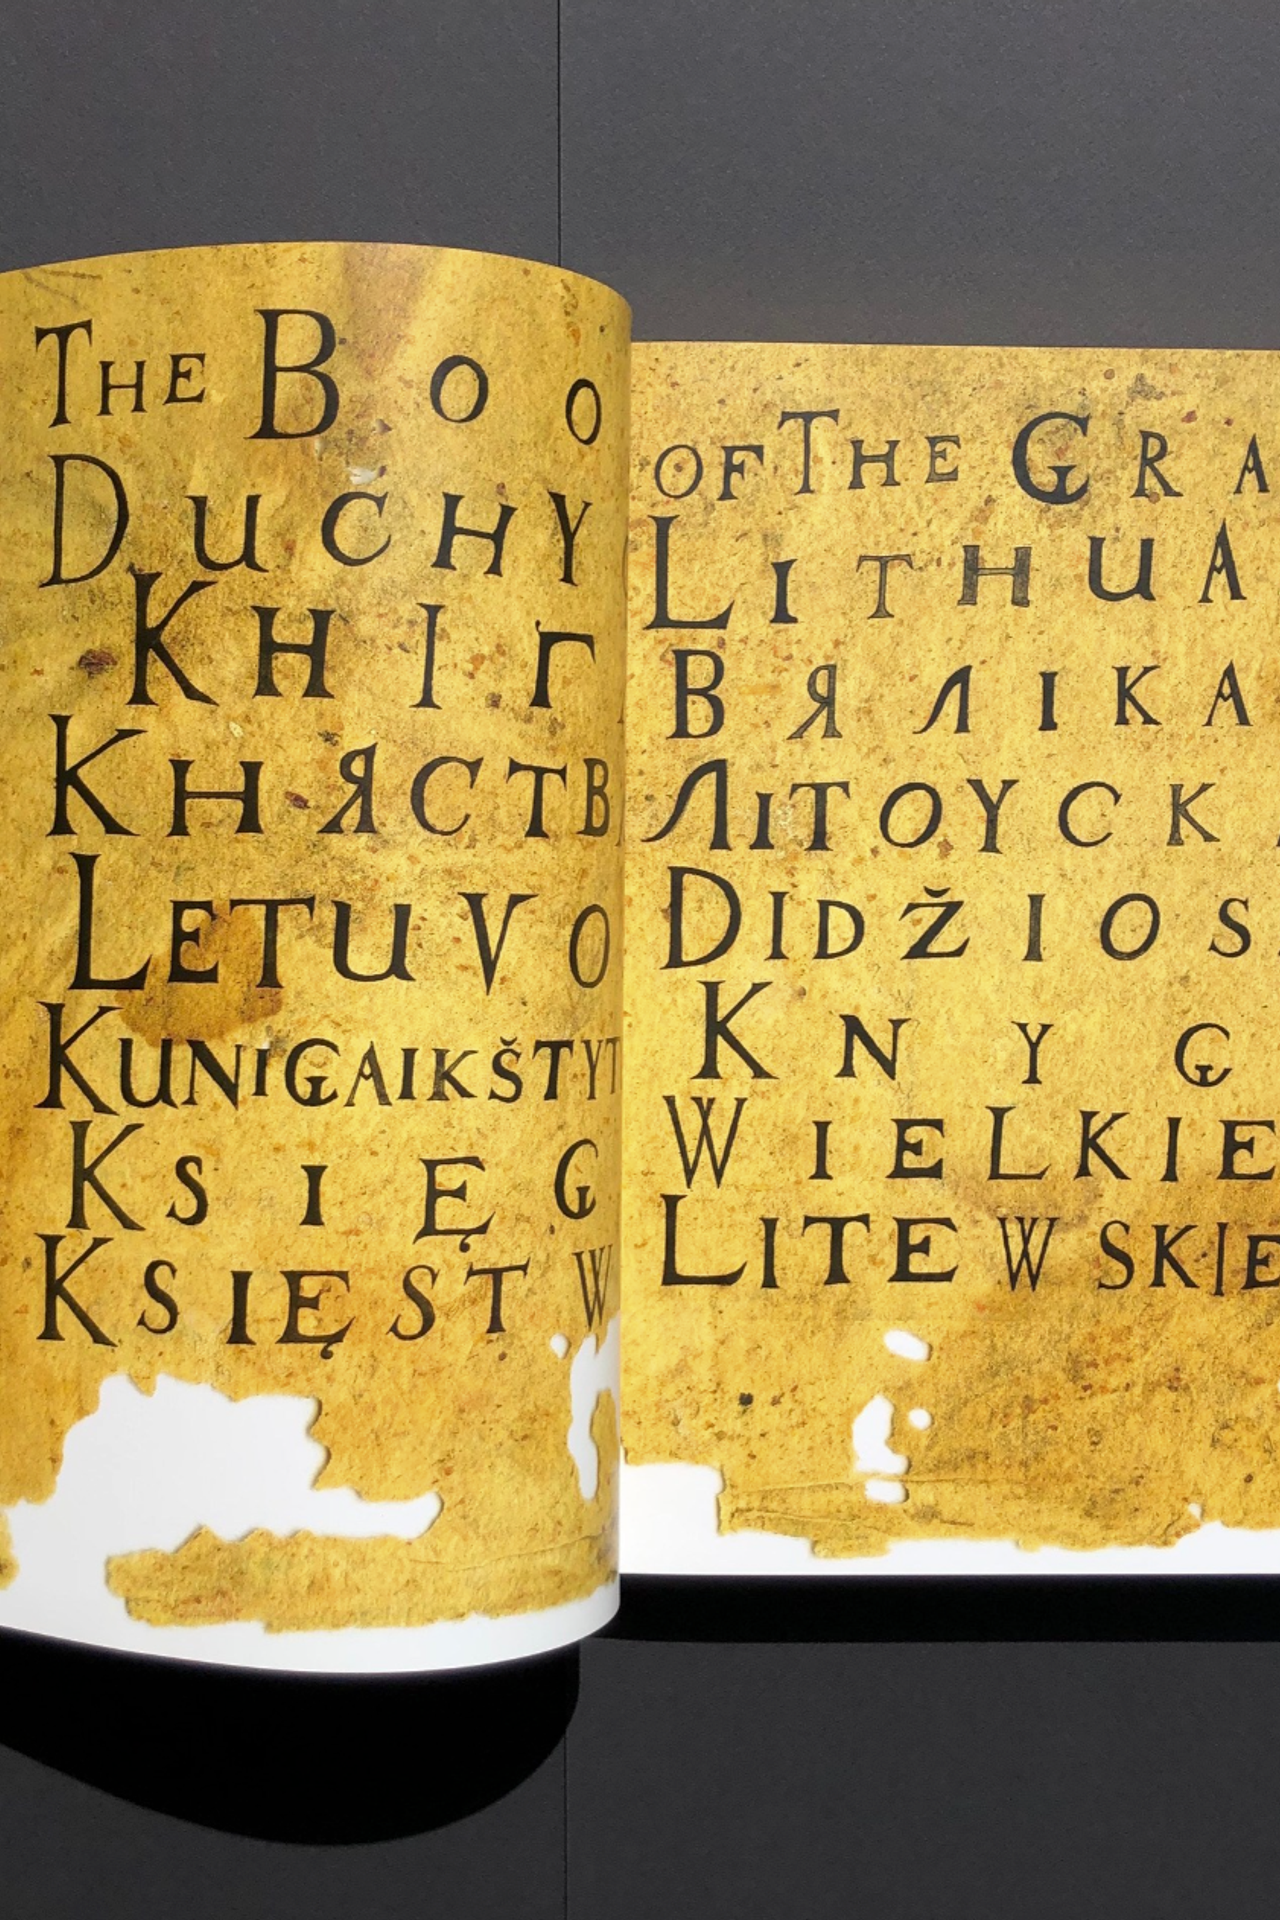 THE BOO OF THE GRA
DUCHY LITHUA
КНІГ ВЯЛІКА
КНЯСТВ ЛІТОУСК
LETUVO DIDŽIOS
KUNIGAIKŠTYT KNYG
KSIĘG WIELKIE
KSIĘSTW LITEWSKIE